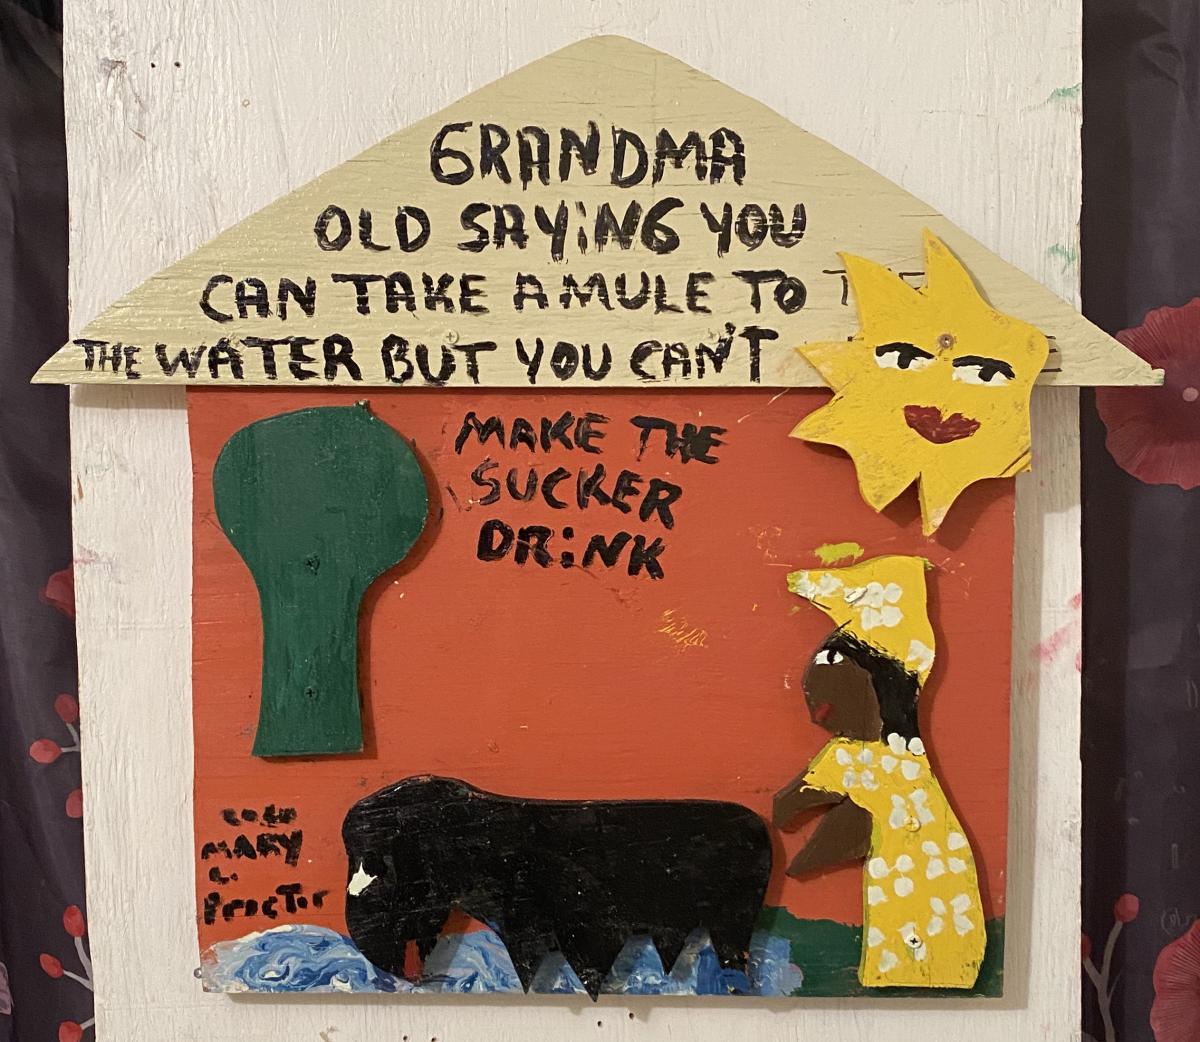 GRANDMA
OLD SAYiNG YOU
CAN TAKE A MULE TO
THE WATER BUT YOU CAN'T
MAKE THE
SUCKER
DRiNK
MARY
L.
PrOcTor